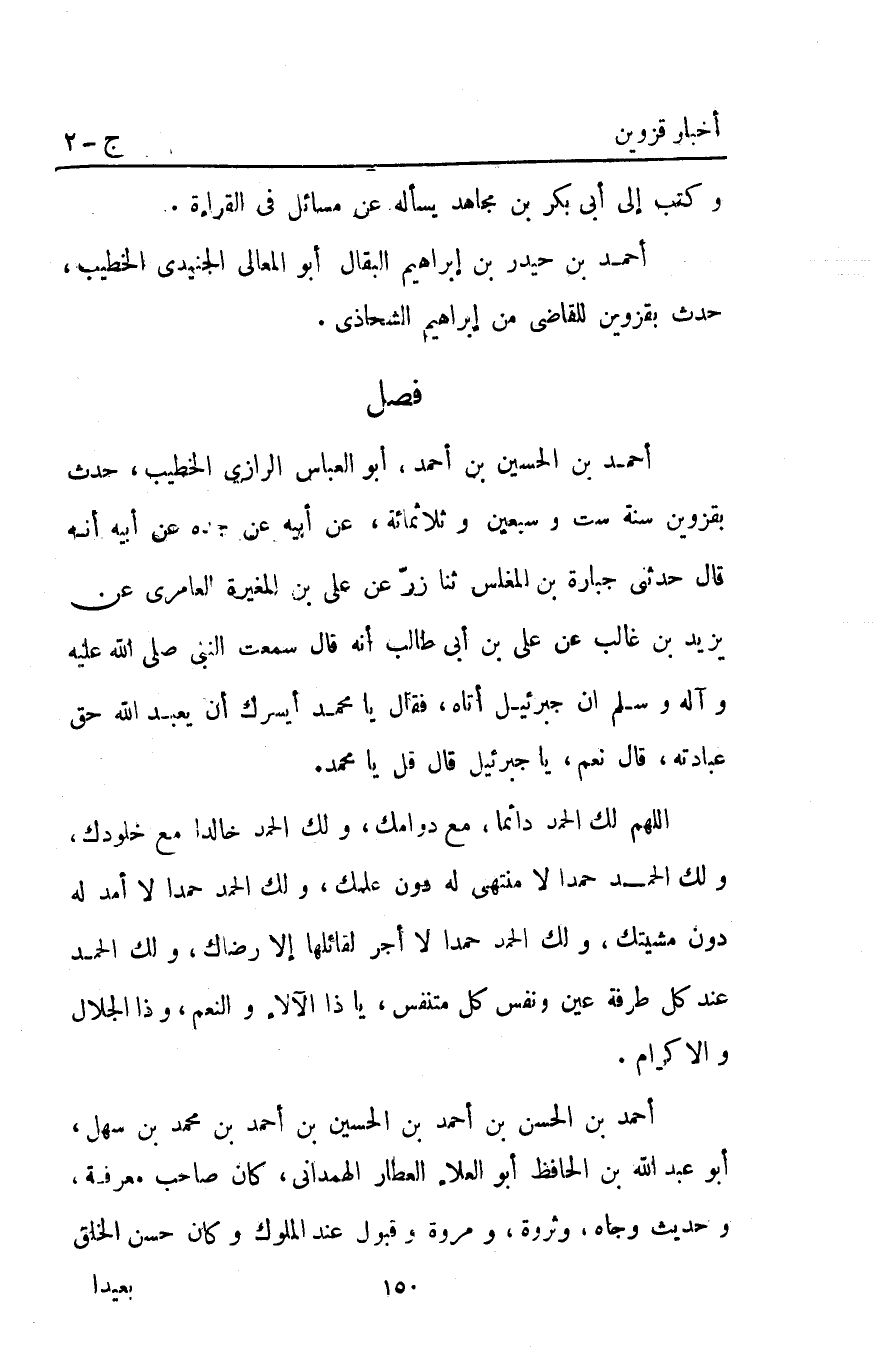 أخبار قزوين ج - ٢
و كتب إلى أبى بكر بن مجاهد يسأله عن مسائل فى القراءة .
أحمد بن حيدر بن إبراهيم البقال أبو المعالى الجنيدى الخطيب ،
حدث بقزوين للقاضى من إبراهيم الشحاذى .
فصل
أحمد بن الحسين بن أحمد ، أبو العباس الرازي الخطيب ، حدث
بقزوين سنة ست و سبعين و ثلاثمائة ، عن أبيه عن جده عن أبيه أنه
قال حدثنى جبارة بن المغلس ثنا زرّ عن على بن المغيرة العامرى عن
يزيد بن غالب عن على بن أبى طالب أنه قال سمعت النبى صلى الله عليه
و آله و سلم ان جبرئيل أتاه ، فقال يا محمد أيسرك أن يعبد الله حق
عبادته ، قال نعم ، يا جبرئيل قال قل يا محمد.
اللهم لك الحمد دائما ، مع دوامك ، و لك الحمد خالدا مع خلودك ،
و لك الحمد حمدا لا منتهى له دون علمك ، و لك الحمد حمدا لا أمد له
دون مشيتك ، و لك الحمد حمدا لا أجر لقائلها إلا رضاك ، و لك الحمد
عند كل طرفة عين ونفس كل متنفس ، يا ذا الآلاء و النعم ، و ذا الجلال
و الاكرام .
أحمد بن الحسن بن أحمد بن الحسين بن أحمد بن محمد بن سهل ،
أبو عبد الله بن الحافظ أبو العلاء العطار الهمدانى ، كان صاحب معرفة ،
و حديث وجاه ، وثروة ، و مروة و قبول عند الملوك و كان حسن الخلق
١٥٠ بعيدا